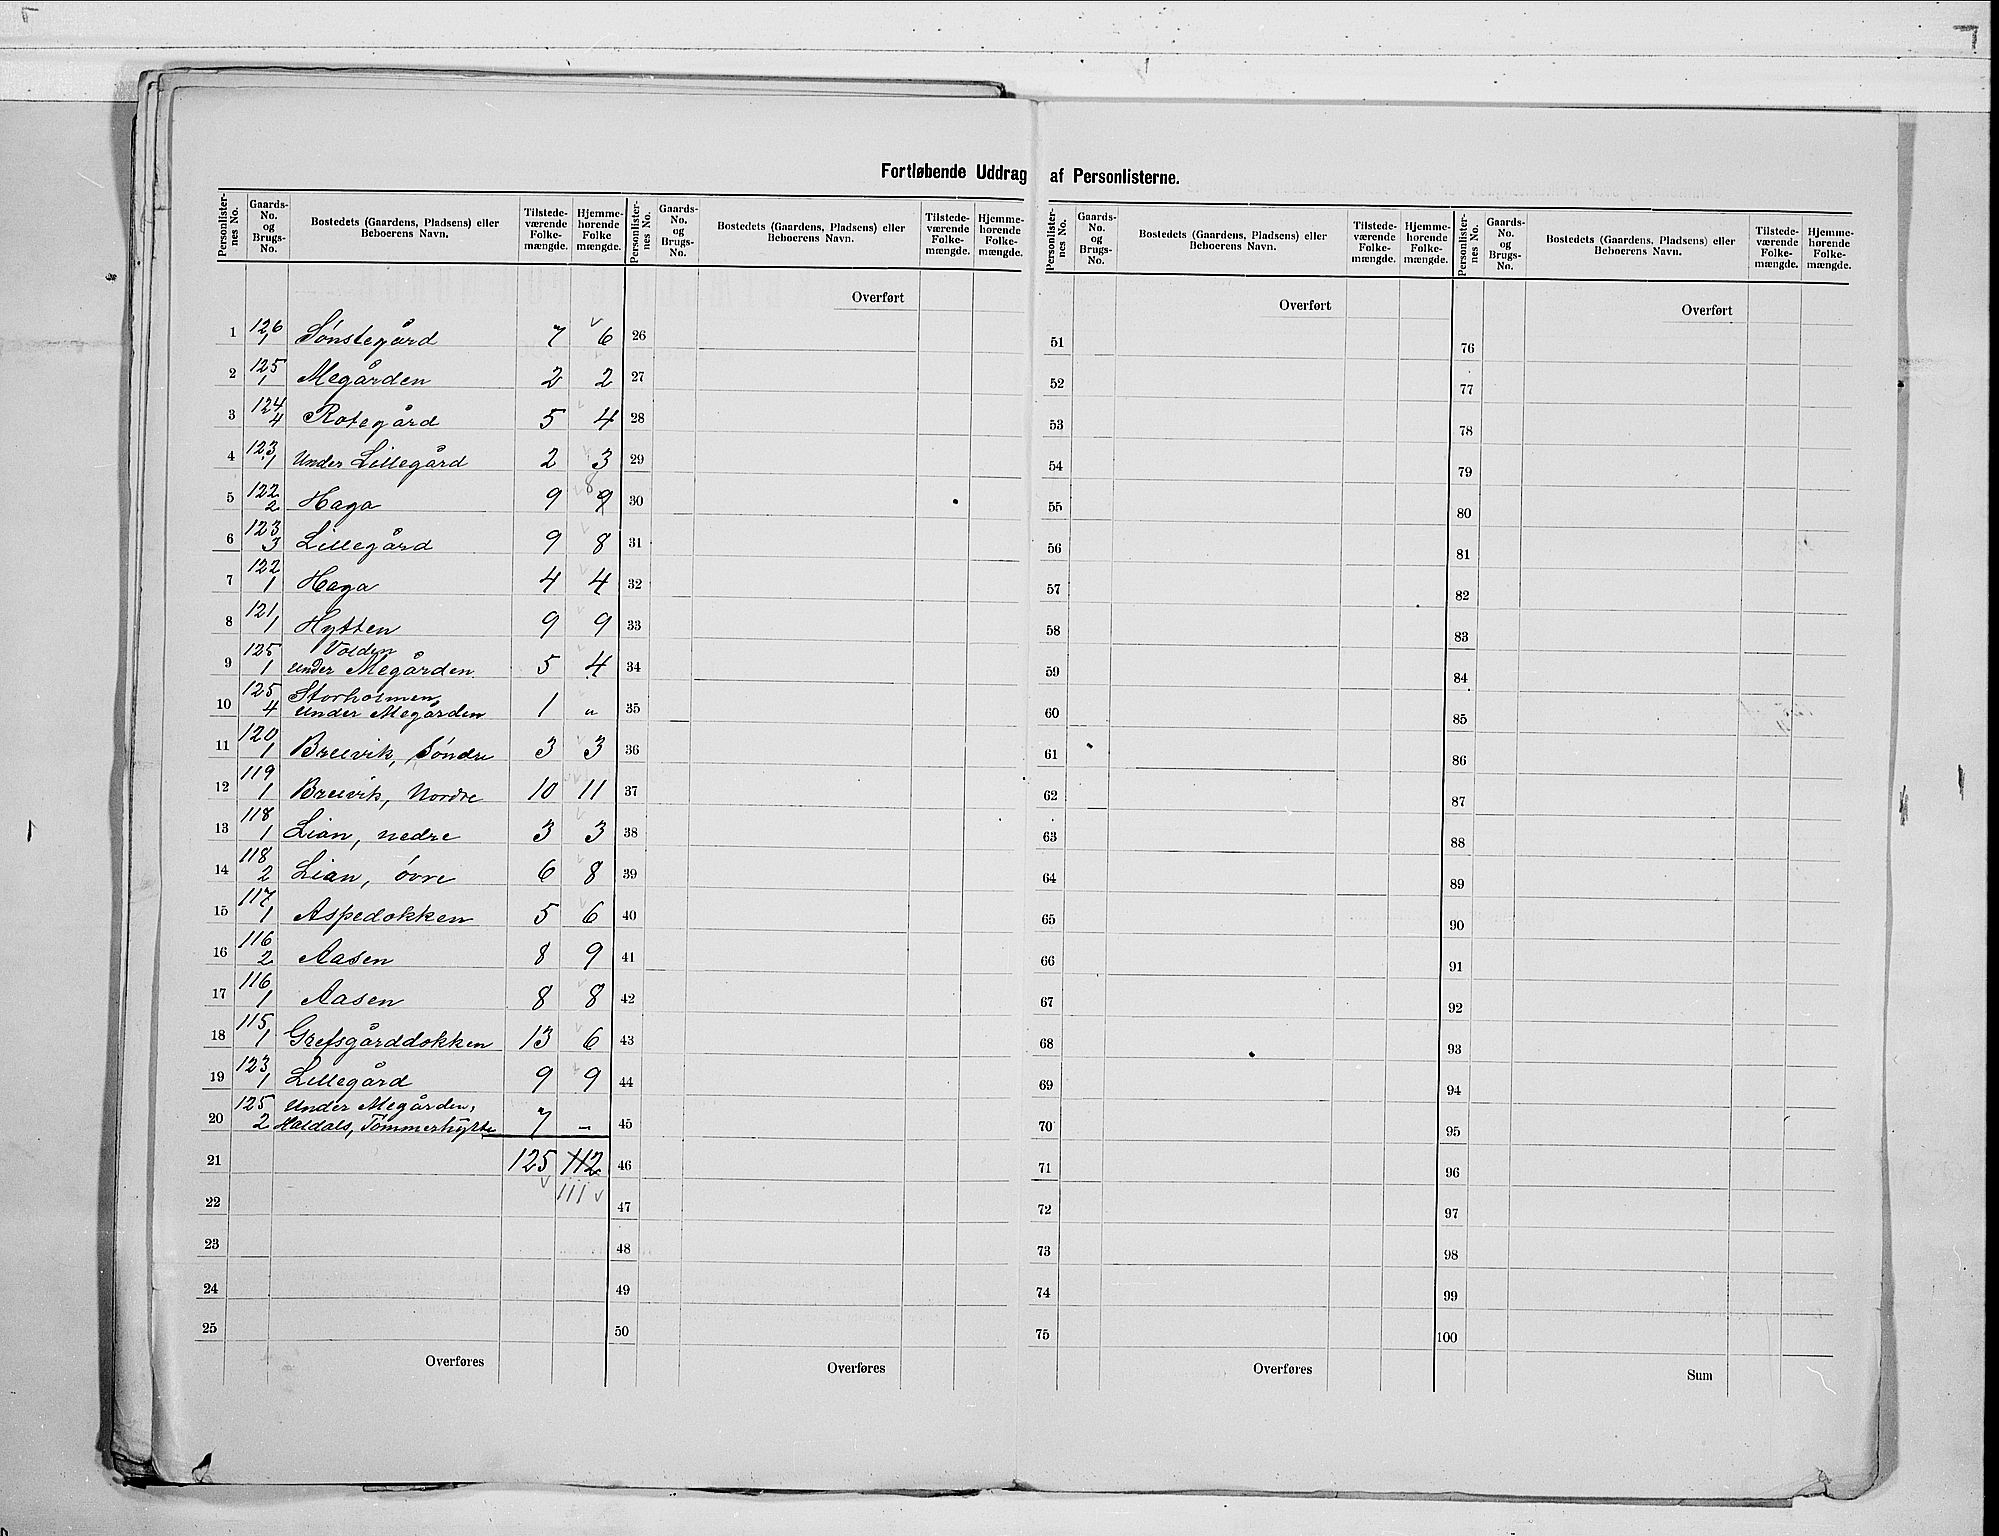 Fortløbende Uddrag af Personlisterne.
Personlister-nes No. Gaards-No. og Brugs-No. Bostedets (Gaardens, Pladsens) eller Beboerens Navn. Tilstede-værende Folke-mængde. Hjemme-hørende Folke mængde.
1 126/1 Sønstegård 7 6
2 125/1 Megården 2 2
3 124/4 Rotegård 5 4
4 123/1 Under Lillegård 2 3
5 122/2 Haga 9 9 8
6 123/3 Lillegård 9 8
7 122/1 Haga 4 4
8 121/1 Hytten 9 9
9 125/1 Volden under Megården 5 4
10 125/4 Storholmen under Megården 1 "
11 120/1 Breivik, Søndre 3 3
12 119/1 Breivik, Nordre 10 11
13 118/1 Lian, nedre 3 3
14 118/2 Lian, øvre 6 8
15 117/1 Aspedokken 5 6
16 116/2 Aasen 8 9
17 116/1 Aasen 8 8
18 115/1 Grefsgårddokken 13 6
19 123/1 Lillegård 9 9
20 125/2 Under Megården, Haldals, Tømmerhytte 7 -
21 125 112
22 111
23
24
25
Overføres
Personlister-nes No. Gaards-No. og Brugs-No. Bostedets (Gaardens, Pladsens) eller Beboerens Navn. Tilstede-værende Folke-mængde. Hjemme-hørende Folke-mængde.
Overført
26
27
28
29
30
31
32
33
34
35
36
37
38
39
40
41
42
43
44
45
46
47
48
49
50
Overføres
Personlister-nes No. Gaards-No. og Brugs-No. Bostedets (Gaardens, Pladsens) eller Beboerens Navn. Tilstede-værende Folke-mængde. Hjemme-hørende Folke-mængde.
Overført
51
52
53
54
55
56
57
58
59
60
61
62
63
64
65
66
67
68
69
70
71
72
73
74
75
Overføres
Personlister-nes No. Gaards-No. og Brugs-No. Bostedets (Gaardens, Pladsens) eller Beboerens Navn. Tilstede-værende Folke-mængde. Hjemme-hørende Folke-mængde.
Overført
76
77
78
79
80
81
82
83
84
85
86
87
88
89
90
91
92
93
94
95
96
97
98
99
100
Sum